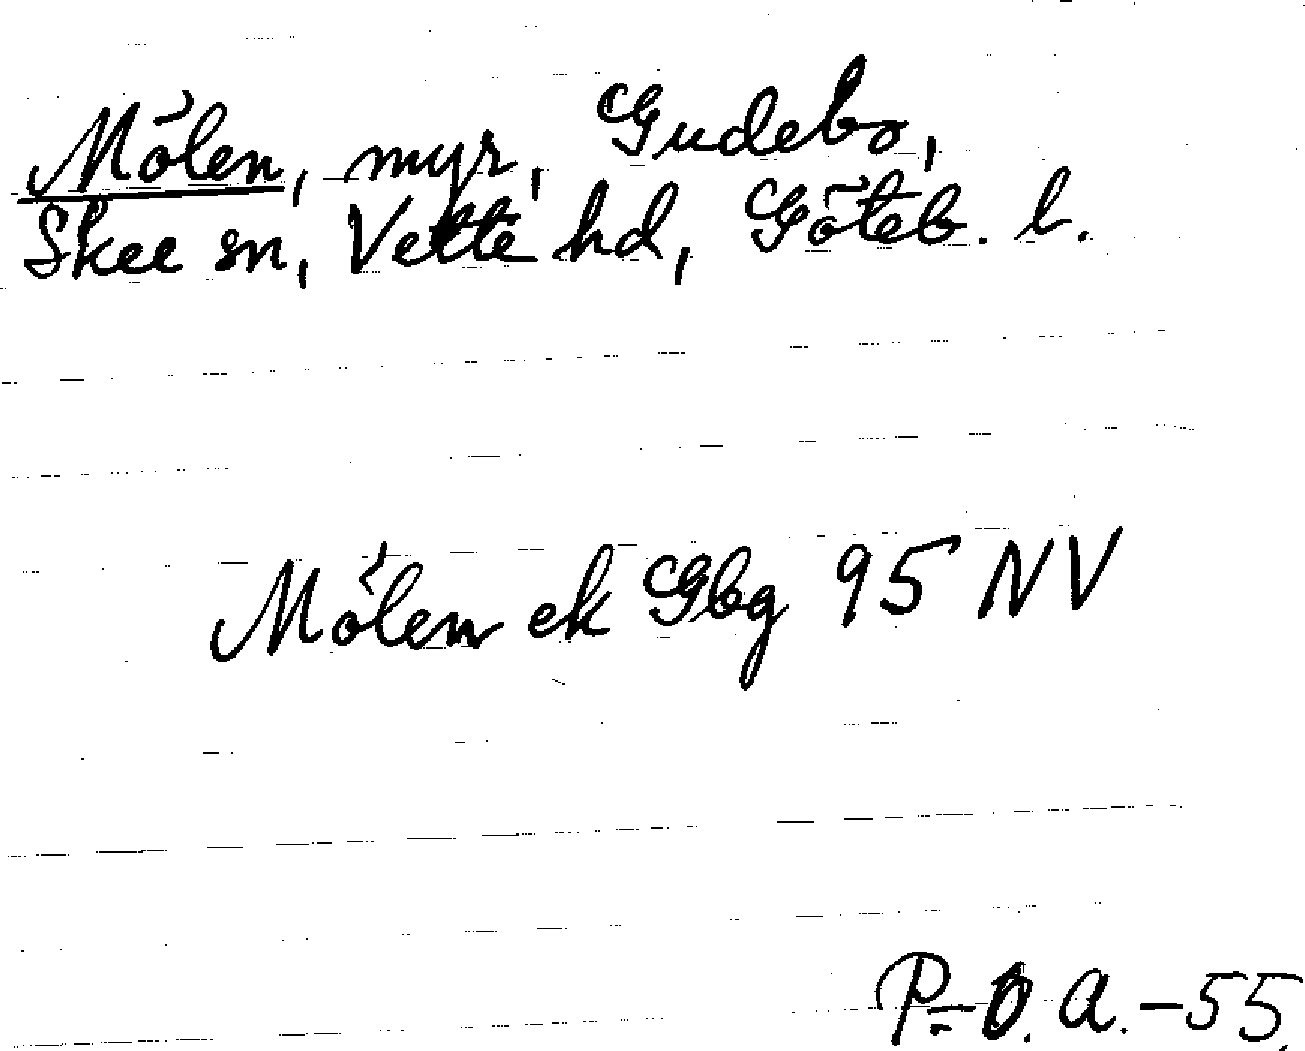 Mölen, myr, Gudebo,
Skee sn, Vette hd, Göteb. l.
Mölen ek Gbg 95 NV
P.-O. A. -55.